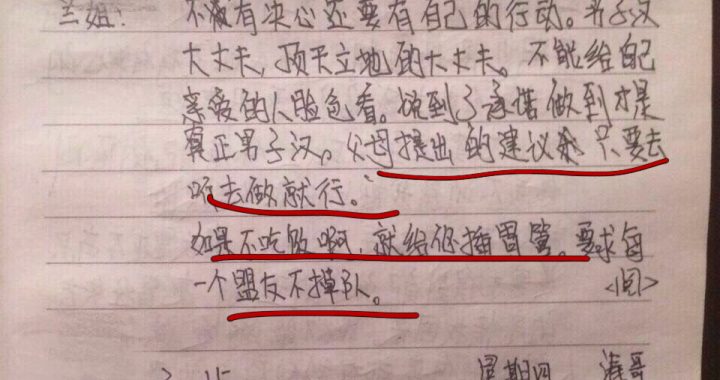 兰姐: 不仅有决心还要有自己的行动。男子汉
大丈夫,顶天立地的大丈夫。不能给自己
亲爱的人脸色看。说到了承诺做到才是
真正男子汉。父母提出的建议条只要去
听去做就行。
如果不吃饭啊,就给你插胃管。要求每
一个盟友不掉队。 <阅>
星期四 海哥